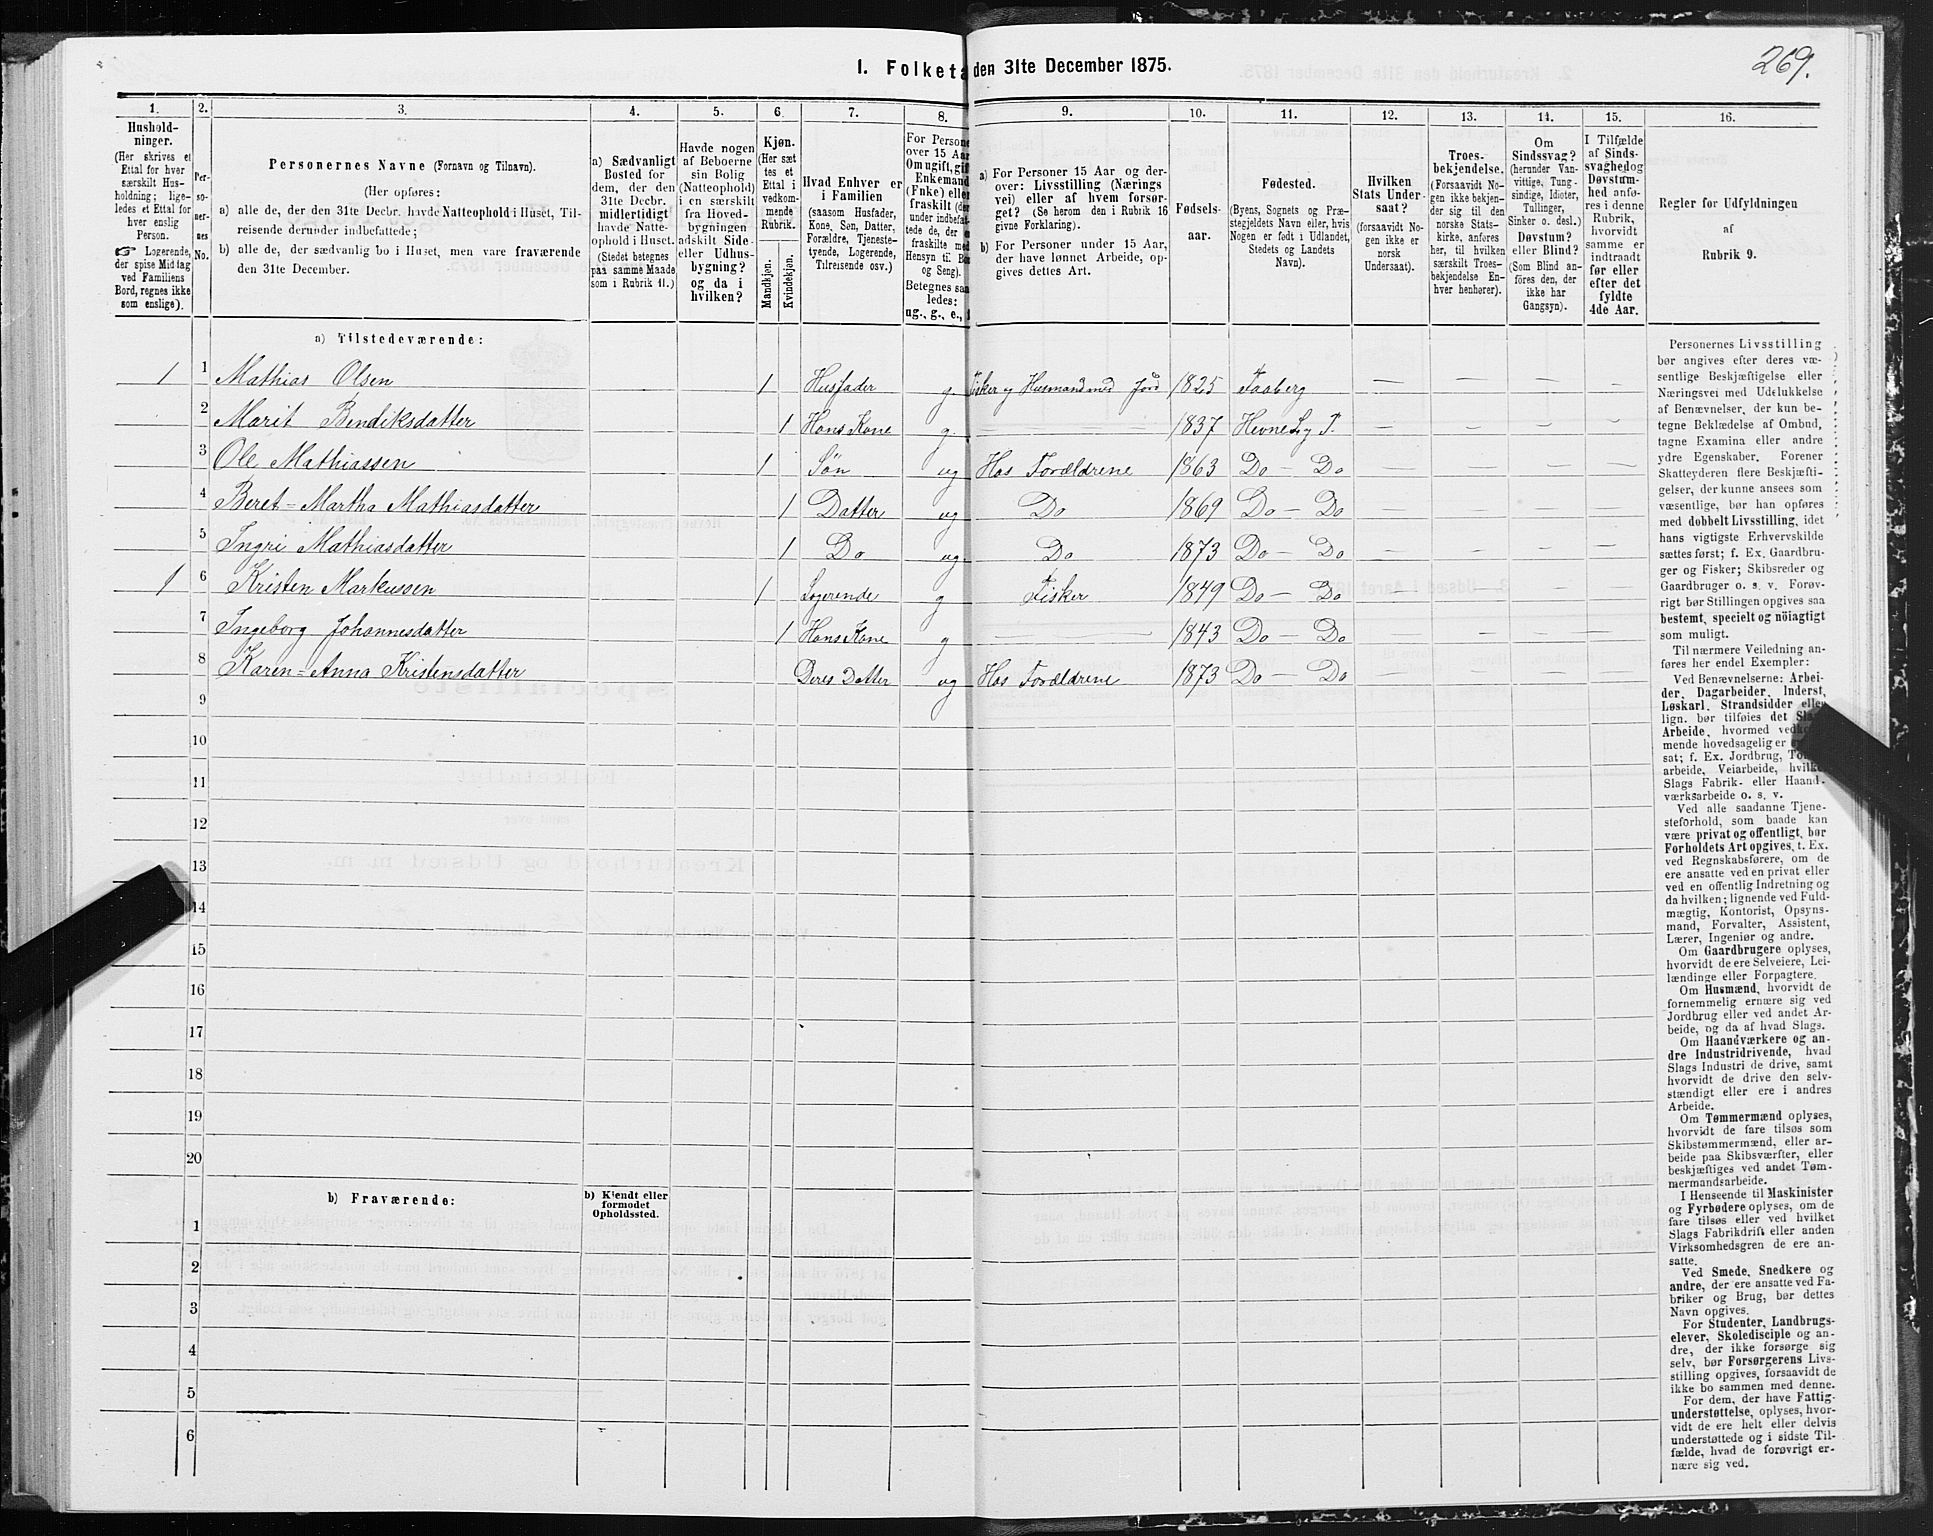 269.
1. Folketa den 31te December 1875.
1. 2. 3. 4. 5. 6. 7. 8. 9. 10. 11. 12. 13. 14. 15. 16.
Hushold-
ninger.
(Her skrives et
Ettal for hver
særskilt Hus-
holdning; lige-
ledes et Ettal for
hver enslig
Person.
☞ Logerende,
der spise Middag
ved Familiens
Bord, regnes ikke
som enslige).
Per-
so-
ner-
nes
No.
Personernes Navne (Fornavn og Tilnavn).
(Her opføres:
a) alle de, der den 31te Decbr. havde Natteophold i Huset, Til-
reisende derunder indbefattede;
b) alle de, der sædvanlig bo i Huset, men vare fraværende
den 31te December.
a) Sædvanligt
Bosted for
dem, der den
31te Decbr.
midlertidigt
havde Natte-
ophold i Huset.
(Stedet betegnes
paa samme Maade
som i Rubrik 11.)
Havde nogen
af Beboerne
sin Bolig
(Natteophold)
i en særskilt
fra Hoved-
bygningen
adskilt Side-
eller Udhus-
bygning?
og da i
hvilken?
Kjøn.
(Her sæt-
tes et
Ettal i
vedkom-
mende
Rubrik.
Mandkjøn.
Kvindekjøn.
Hvad Enhver er
i Familien
(saasom Husfader,
Kone, Søn, Datter,
Forældre, Tjeneste-
tyende, Logerende,
Tilreisende osv.)
For Persone
over 15 Aar
Om ugift, gif
Enkemand
(Enke) elle
fraskilt (der
under indbefat-
tede de, der e
fraskilte med
Hensyn til Bo
og Seng).
Betegnes saa
ledes:
ug., g., e.,
a) For Personer 15 Aar og der-
over: Livsstilling (Nærings
vei) eller af hvem forsør-
get? (Se herom den i Rubrik 16
givne Forklaring).
b) For Personer under 15 Aar,
der have lønnet Arbeide, op-
gives dettes Art.
Fødsels-
aar.
Fødested.
(Byens, Sognets og Præ-
stegjeldets Navn eller, hvis
Nogen er født i Udlandet,
Stedets og Landets
Navn).
Hvilken
Stats Under-
saat?
(forsaavidt No-
gen ikke er
norsk
Undersaat).
Troes-
bekjendelse.
(Forsaavidt No-
gen ikke bekjen-
der sig til den
norske Stats-
kirke, anføres
her, til hvilken
særskilt Troes-
bekjendelse En-
hver henhører).
Om
Sindssvag?
(herunder Van-
vittige, Tung-
sindige, Idioter,
Tullinger,
Sinker o. desl.)
Døvstum?
eller Blind?
(Som Blind an-
føres den, der
ikke har
Gangsyn).
I Tilfælde
af Sinds-
svaghed og
Døvstum-
hed anfø-
res i denne
Rubrik,
hvorvidt
samme er
indtraadt
før eller
efter det
fyldte
4de Aar.
Regler for Udfyldningen
af
Rubrik 9.
a) Tilstedeværende:
1 1 Mathias Olsen 1 Husfader g Fisker og Husmand med Jord 1825 Faaberg — — — —
2 Marit Bendiksdatter 1 Hans Kone g. — — — 1837 Hevne S og P. — — — —
3 Ole Mathiassen 1 Søn ug Hos Forældrene 1863 Do — Do — — — —
4 Beret-Martha Mathiasdatter 1 Datter ug Do 1869 Do — Do — — — —
5 Ingri Mathiasdatter 1 Do ug Do 1873 Do — Do — — — —
1 6 Kristen Markussen 1 Logerende g Fisker 1849 Do — Do — — — —
7 Ingeborg Johannesdatter 1 Hans Kone g — — 1843 Do — Do — — — —
8 Karen-Anna Kristensdatter Deres Datter ug Hos Forældrene 1873 Do — Do — — — —
9
10
11
12
13
14
15
16
17
18
19
20
b) Fraværende:
b) Kjendt eller
formodet
Opholdssted.
1
2
3
4
5
6
Personernes Livsstilling
bør angives efter deres væ-
sentlige Beskjæftigelse eller
Næringsvei med Udelukkelse
af Benævnelser, der kun be-
tegne Beklædelse af Ombud,
tagne Examina eller andre
ydre Egenskaber. Forener
Skatteyderen flere Beskjæfti-
gelser, der kunne ansees som
væsentlige, bør han opføres
med dobbelt Livsstilling, idet
hans vigtigste Erhvervskilde
sættes først; f. Ex. Gaardbru-
ger og Fisker; Skibsreder og
Gaardbruger o. s. v. Forøv-
rigt bør Stillingen opgives saa
bestemt, specielt og nöiagtigt
som muligt.
Til nærmere Veiledning an-
føres her endel Exempler:
Ved Benævnelserne: Arbei-
der, Dagarbeider, Inderst,
Løskarl, Strandsidder eller
lign. bør tilføies det Slags
Arbeide, hvormed
mende hovedsagelig er
sat; f. Ex. Jordbrug,
arbeide, Veiarbeide, hvilket
Slags Fabrik- eller Haand-
værksarbeide o. s. v.
Ved alle saadanne Tjene-
steforhold, som baade kan
være privat og offentligt, bør
Forholdets Art opgives, t. Ex.
ved Regnskabsførere, om de
ere ansatte ved en privat eller
ved en offentlig Indretning og
da hvilken; lignende ved Fuld-
mægtig, Kontorist, Opsyns-
mand, Forvalter, Assistent,
Lærer, Ingeniør og andre.
Om Gaardbrugere oplyses,
hvorvidt de ere Selveiere, Lei-
lændinge eller Forpagtere.
Om Husmænd, hvorvidt de
fornemmelig ernære sig ved
Jordbrug eller ved andet Ar-
beide, og da af hvad Slags.
Om Haandværkere og an-
dre Industridrivende, hvad
Slags Industri de drive, samt
hvorvidt de drive den selv-
stændigt eller ere i andres
Arbeide.
Om Tømmermænd oplyses,
hvorvidt de fare tilsøs som
Skibstømmermænd, eller ar-
beide paa Skibsværfter, eller
beskjæftiges ved andet Tøm-
mermandsarbeide.
I Henseende til Maskinister
og Fyrbødere oplyses, om de
fare tilsøs eller ved hvilket
Slags Fabrikdrift eller anden
Virksomhedsgren de ere an-
satte.
Ved Smede, Snedkere og
andre, der ere ansatte ved Fa-
briker og Brug, bør dettes
Navn opgives.
For Studenter, Landbrugs-
elever, Skoledisciple og an-
dre, der ikke forsørge sig
selv, bør Forsørgerens Livs-
stilling opgives, forsaavidt de
ikke bo sammen med denne.
For dem, der have Fattig-
understøttelse, oplyses, hvor-
vidt de ere helt eller delvis
understøttede og i sidste Til-
fælde, hvad de forøvrigt er-
nære sig ved.